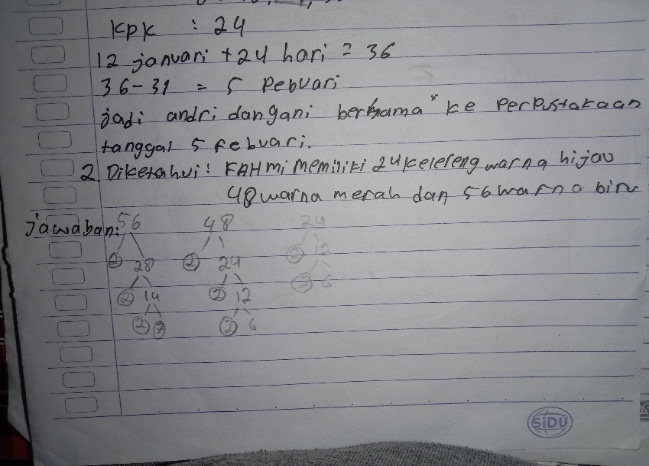 KPK : 24
12 januari + 24 hari = 36
36 - 31 = 5 Pebuari
jadi andri dan gani bersama" ke Perpustakaan
tanggal 5 Febuari.
2. Diketahui : FAHmi memiliki 24 kelereng warna hijau
48 warna merah dan 56 warna biru
jawaban:
56 48 24
2 28 2 24 2 12
2 14 2 12 2 6
2 7 2 6
SiDU